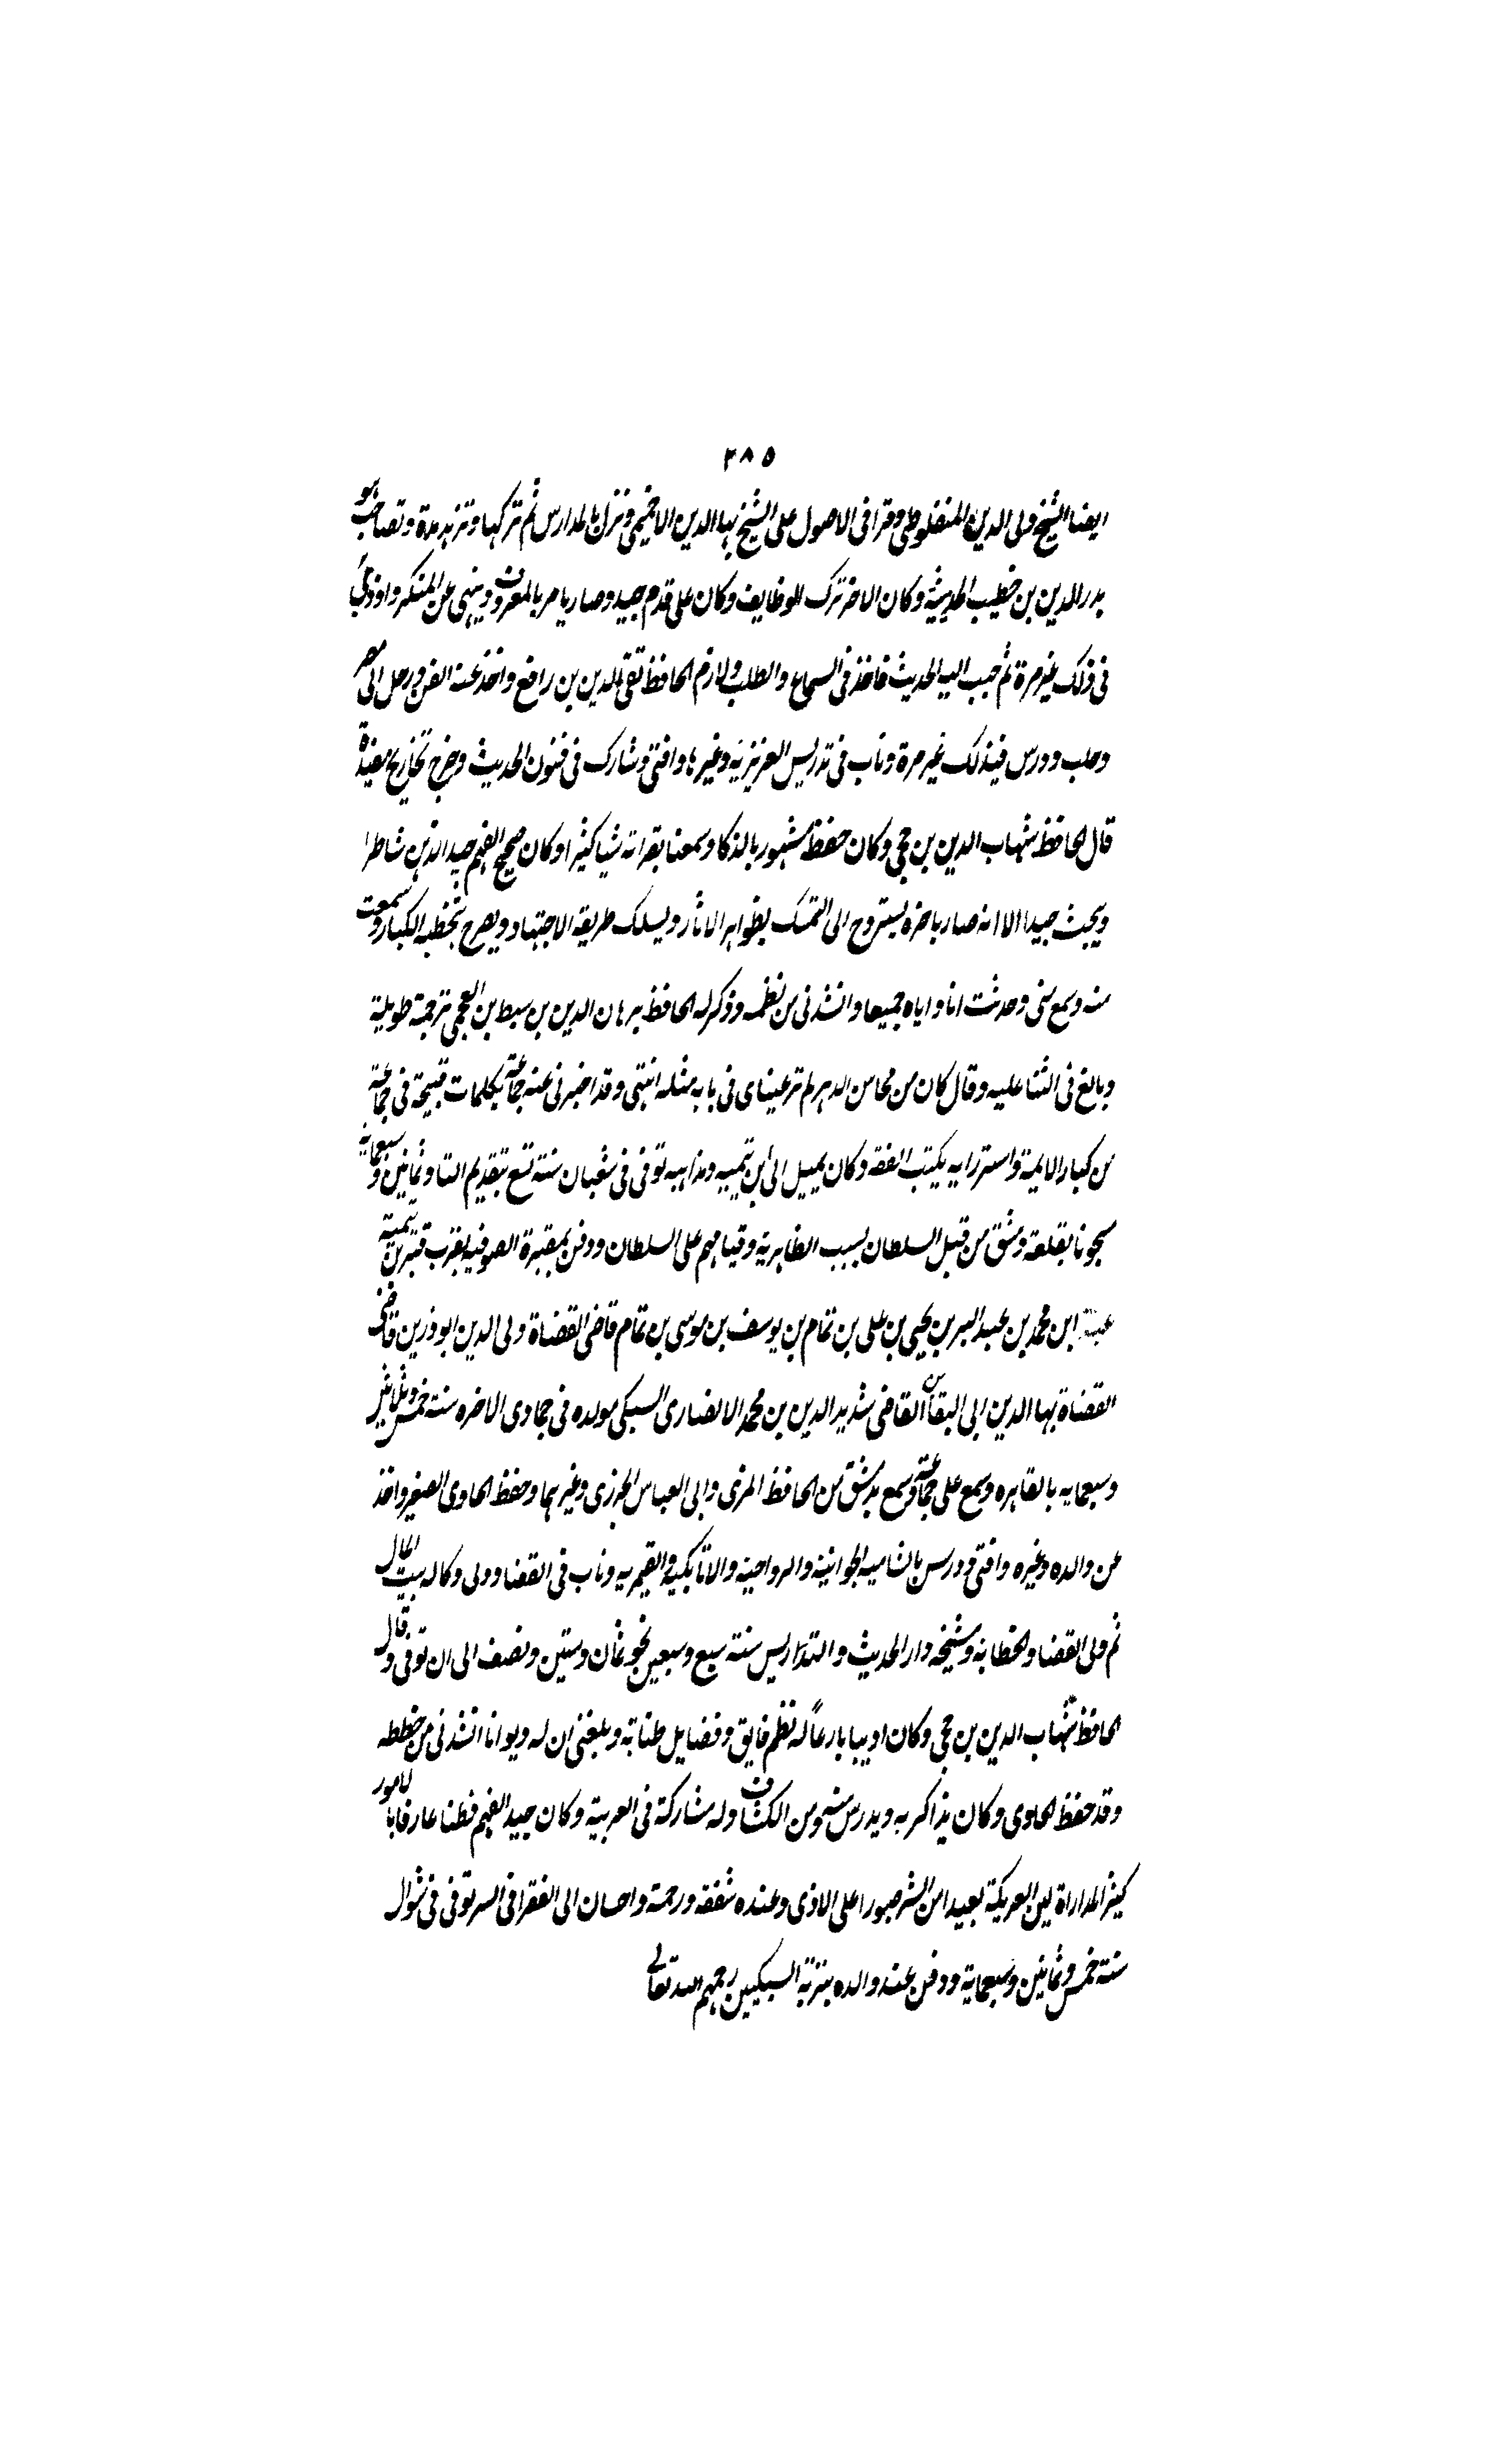 ٢٨٥
ايضا الشيخ ولى الدين المنفلوطى وقرا فى الاصول على الشيخ بها الدين الاخميمى ونزل بالمدارس ثم تركها وتزهد مدة وتصاحب هو
بدر الدين بن خطيب الحديثية وكان الاخر ترك الوظايف وكان على قدم جيد وصار يامر بالمعروف وينهى عن المنكر واوذى
فى ذلك غير مرة ثم حبب اليه الحديث فاخذ فى السماع والطلب ولازم الحافظ تقى الدين بن رافع واخذ عنه الفن ورحل الى مصر
وحلب ودرس فيذلك غير مرة وناب فى تدريس العزيزية وغيرها وافتى وشارك فى فنون الحديث وخرج تخاريج مفيدة
قال الحافظ شهاب الدين بن حجى وكان حفظة مشهور بالذكا وسمعنا بقراته شيا كثيرا وكان صحيح الفهم جيد الذهن شاطرا
ويبحث جيدا الا انه صار باخره يستروح الى التمسك بظواهر الاثار ويسلك طريقة الاجتهاد ويصرح بتخطية الكبار وسمعت
منه وسمع منى وحدثت انا واياه جميعا وانشدنى من نظمه وذكر له الحافظ برهان الدين بن سبط بن العجمى ترجمة طويلة
وبالغ فى الثنا عليه وقال كان من محاسن الدهر لم تر عيناى فى بابه مثله انتهى وقد اخبرنى عنه جماعة بكلمات قبيحة فى جماعة
من كبار الايمة واستزرايه بكتب الفقه وكان يميل الى ابن تيمية ومذاهبه توفى فى شعبان سنة تسع بتقديم التا وثمانين وسبعماية
مسجونا بقلعة دمشق من قبل السلطان بسبب الظاهرية وقيامهم على السلطان ودفن بمقبرة الصوفيه بقرب قبر بن تيمية
عبد ابن محمد بن عبد البر بن يحيى بن على بن تمام بن يوسف بن موسى بن تمام قاضى القضاة ولى الدين ابو ذر بن قاضى
القضاة بها الدين ابى البقا بن القاضى شديد الدين بن محمد الانصارى السبكى مولده فى جمادى الاخره سنة خمس وثلاثين
وسبعمايه بالقاهره وسمع على جماعة وسمع بدمشق من الحافظ المزى وابى العباس الجزرى وغيرهما وحفظ الحاوى الصغير واخذ
عن والده وغيره وافتى ودرس بالشاميه الجوانية والرواحية والاتابكية والقيمريه وناب فى القضا وولى وكاله بيت المال
ثم ولى القضا والخطابة ومشيخة دار الحديث والتداريس سنة سبع وسبعين نحو ثمان وستين ونصف الى ان توفى وقال
الحافظ شهاب الدين بن حجى وكان اديبا بارعاً له نظم فايق وفضايل طنابة وبلغنى ان له ديوانا انشدنى من خططه
وقد حفظ الحاوى وكان يذاكر به ويدرس منه ومن الكشاف وله مشاركة فى العربية وكان جيد الفهم فطنا عارفا بالامور
كثير المداراة لين العريكة بعيدا من الشر صبورا على الاذى وعنده شفقه ورحمة واحسان الى الفقرا فى السر توفى فى شوال
سنة خمس وثمانين وسبعماية ودفن عند والده بتربة السبكيين رحمهم الله تعالى